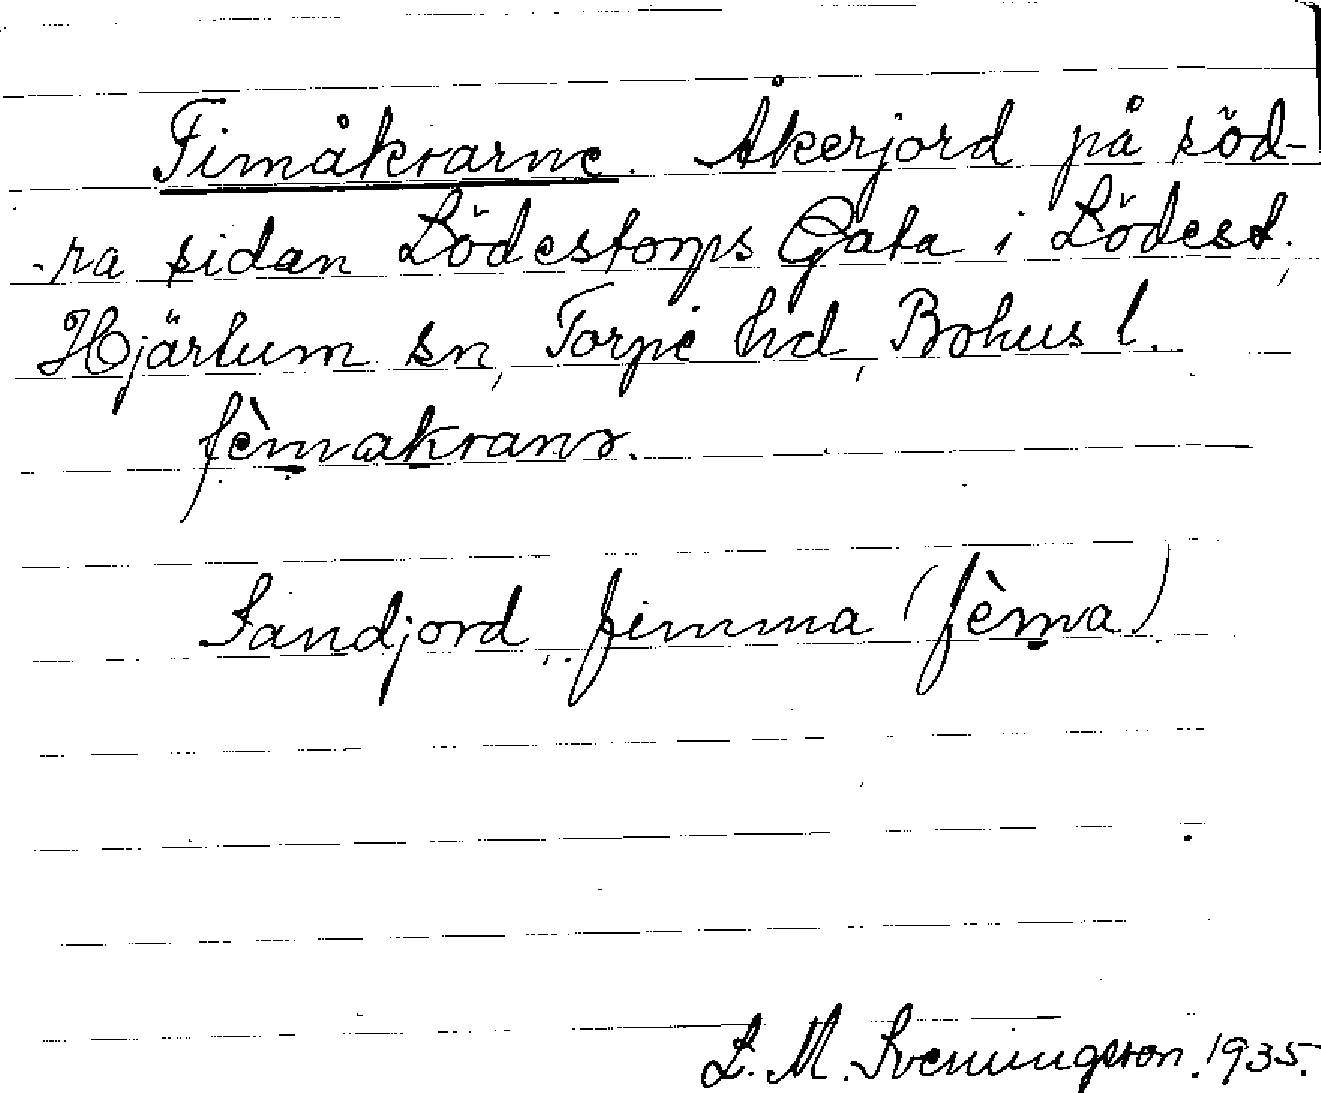 Fimåkrarne. Åkerjord på söd-
-ra sidan Lödestorps Gata i Lödest.,
Hjärtum sn, Torpe hd, Bohus l.
fèmakrana.
Sandjord, fimma (fèma)
L. M. Svenungsson. 1935.